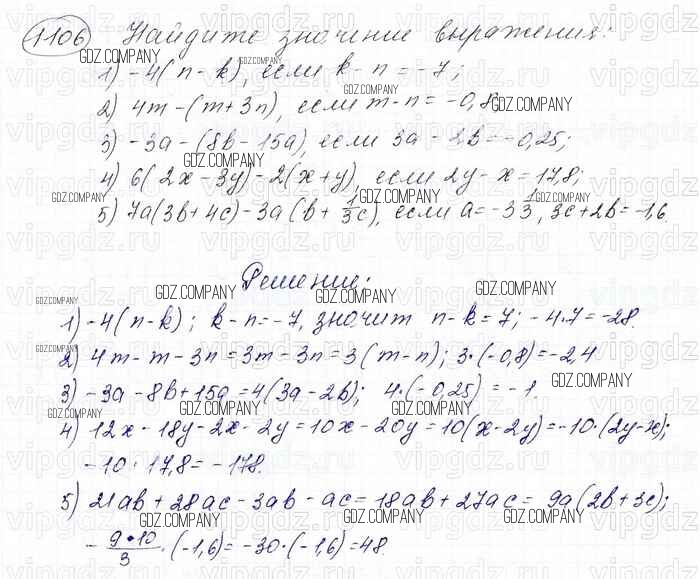 1106 Найдите значение выражения:
1) -4(n-k), если k-n=-7;
2) 4m-(m+3n), если m-n=-0,8
3) -3a-(8b-15a), если 3a-2b=-0,25;
4) 6(2x-3y)-2(x+y), если 2y-x=17,8;
5) 7a(3b+4c)-3a(b+1/3c), если a=-3 1/3, 3c+2b=-1,6
Решение:
1) -4(n-k); k-n=-7, значит n-k=7; -4·7=-28.
2) 4m-m-3n=3m-3n=3(m-n); 3·(-0,8)=-2,4
3) -3a-8b+15a=4(3a-2b); 4·(-0,25)=-1.
4) 12x-18y-2x-2y=10x-20y=10(x-2y)=-10·(2y-x);
-10·17,8=-178.
5) 21ab+28ac-3ab-ac=18ab+27ac=9a(2b+3c);
-9·10/3·(-1,6)=-30·(-1,6)=48.
GDZ.COMPANY
vipgdz.ru